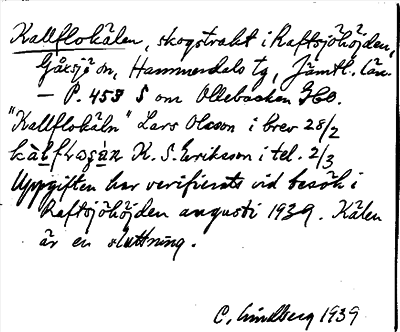 Kallflokälen, skogstrakt i Raftsjöhöjden,
Gåxsjö sn, Hammerdals tg, Jämtl. län.
— P. 458 S om Ollebacken Gbo.
"Kallflokäln" Lars Olsson i brev 28/2
K. S. Eriksson i tel. 2/3
Uppgiften har verifierats vid besök i
Raftsjöhöjden augusti 1939. Kälen
är en sluttning.
C. Lindberg 1939